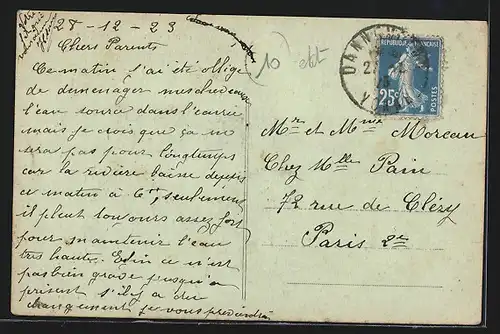 28-12-23
Chers Parents
Ce matin j'ai été oblige
de demenager mes chevaux
l'eau sourd dans l'ecurie
mais je crois que ça ne
sera pas pour longtemps
car la rivière baisse depuis
ce matin à 6h, seulement
il pleut toujours assez fort
pour maintenir l'eau
tres haute. Enfin ce n'est
pas bien grave jusqu'a
présent s'il y a du
changement je vous previendrai
10
REPUBLIQUE FRANÇAISE
25c
POSTES
DANNEMOINE
YONNE
Mr et Mme Moreau
Chez Mlle Pain
72 rue de Cléry
Paris 2e